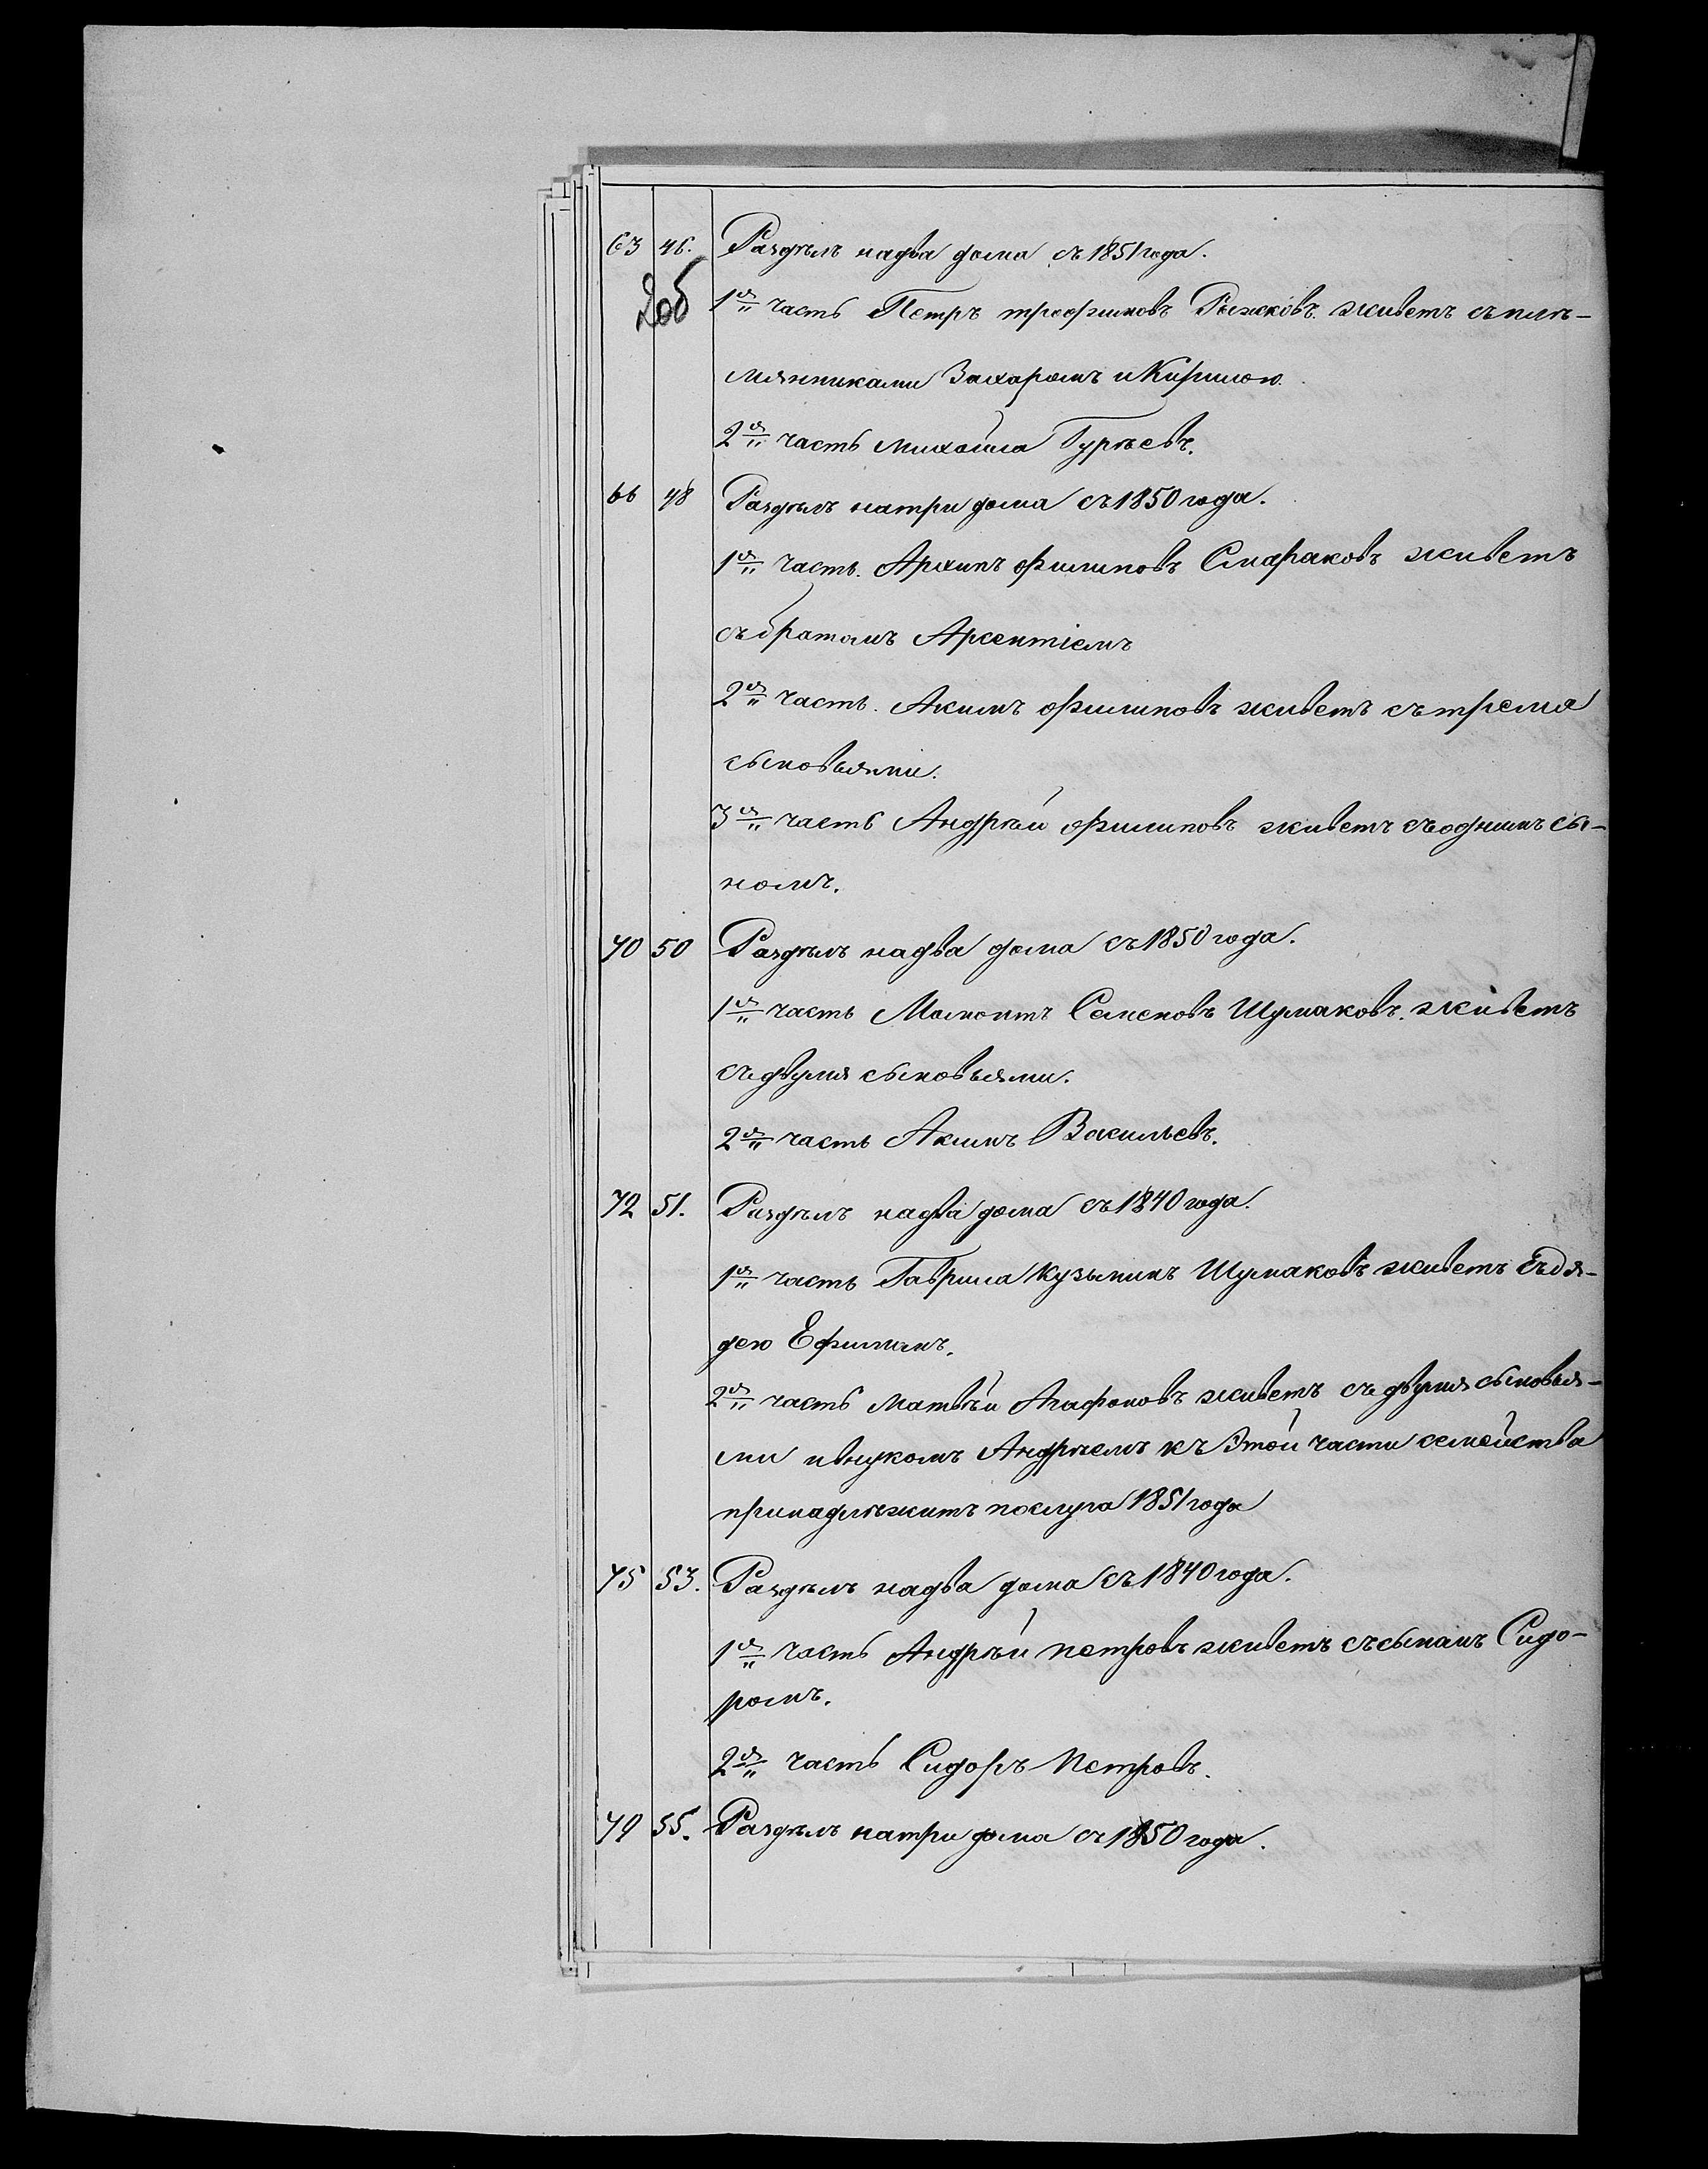 63 46. Раздѣлъ надва дома съ 1851 года.
206
1я часть Петръ трофимовъ Рыжковъ. живетъ съ пле-
мянниками Захаромъ и Кирилою.
2я часть михайла Гурѣевъ.
66 48 Раздѣлъ натри дома съ 1850 года.
1я часть. Архипъ филиповъ живетъ
съ братомъ Арсентіемъ
2я часть. Акимъ филиповъ живетъ съ тремя
сыновьями.
3я часть Андрѣй филиповъ живетъ съ однимъ сы-
номъ.
70 50 Раздѣлъ надва дома съ 1850 года.
1я часть Мамонтъ Семеновъ Шумаковъ. живетъ
съ двумя сыновьями.
2я часть Акимъ Васильевъ.
72 51. Раздѣлъ надва дома съ 1840 года.
1я часть Гаврила Кузьминъ Шумаковъ живетъ съ дя-
дею Ефимамъ.
2я часть матвѣй Агафоновъ живетъ съ двумя сыновья-
ми ивнукомъ Андрѣемъ къ Этой части семейства
принадлѣжитъ послуга 1851 года
75 53. Раздѣлъ надва дома съ 1840 года.
1я часть Андрѣй петровъ живетъ съ сынамъ Сидо-
ромъ.
2я часть Сидоръ Петровъ.
79 55. Раздѣлъ натри дома съ 1850 года.